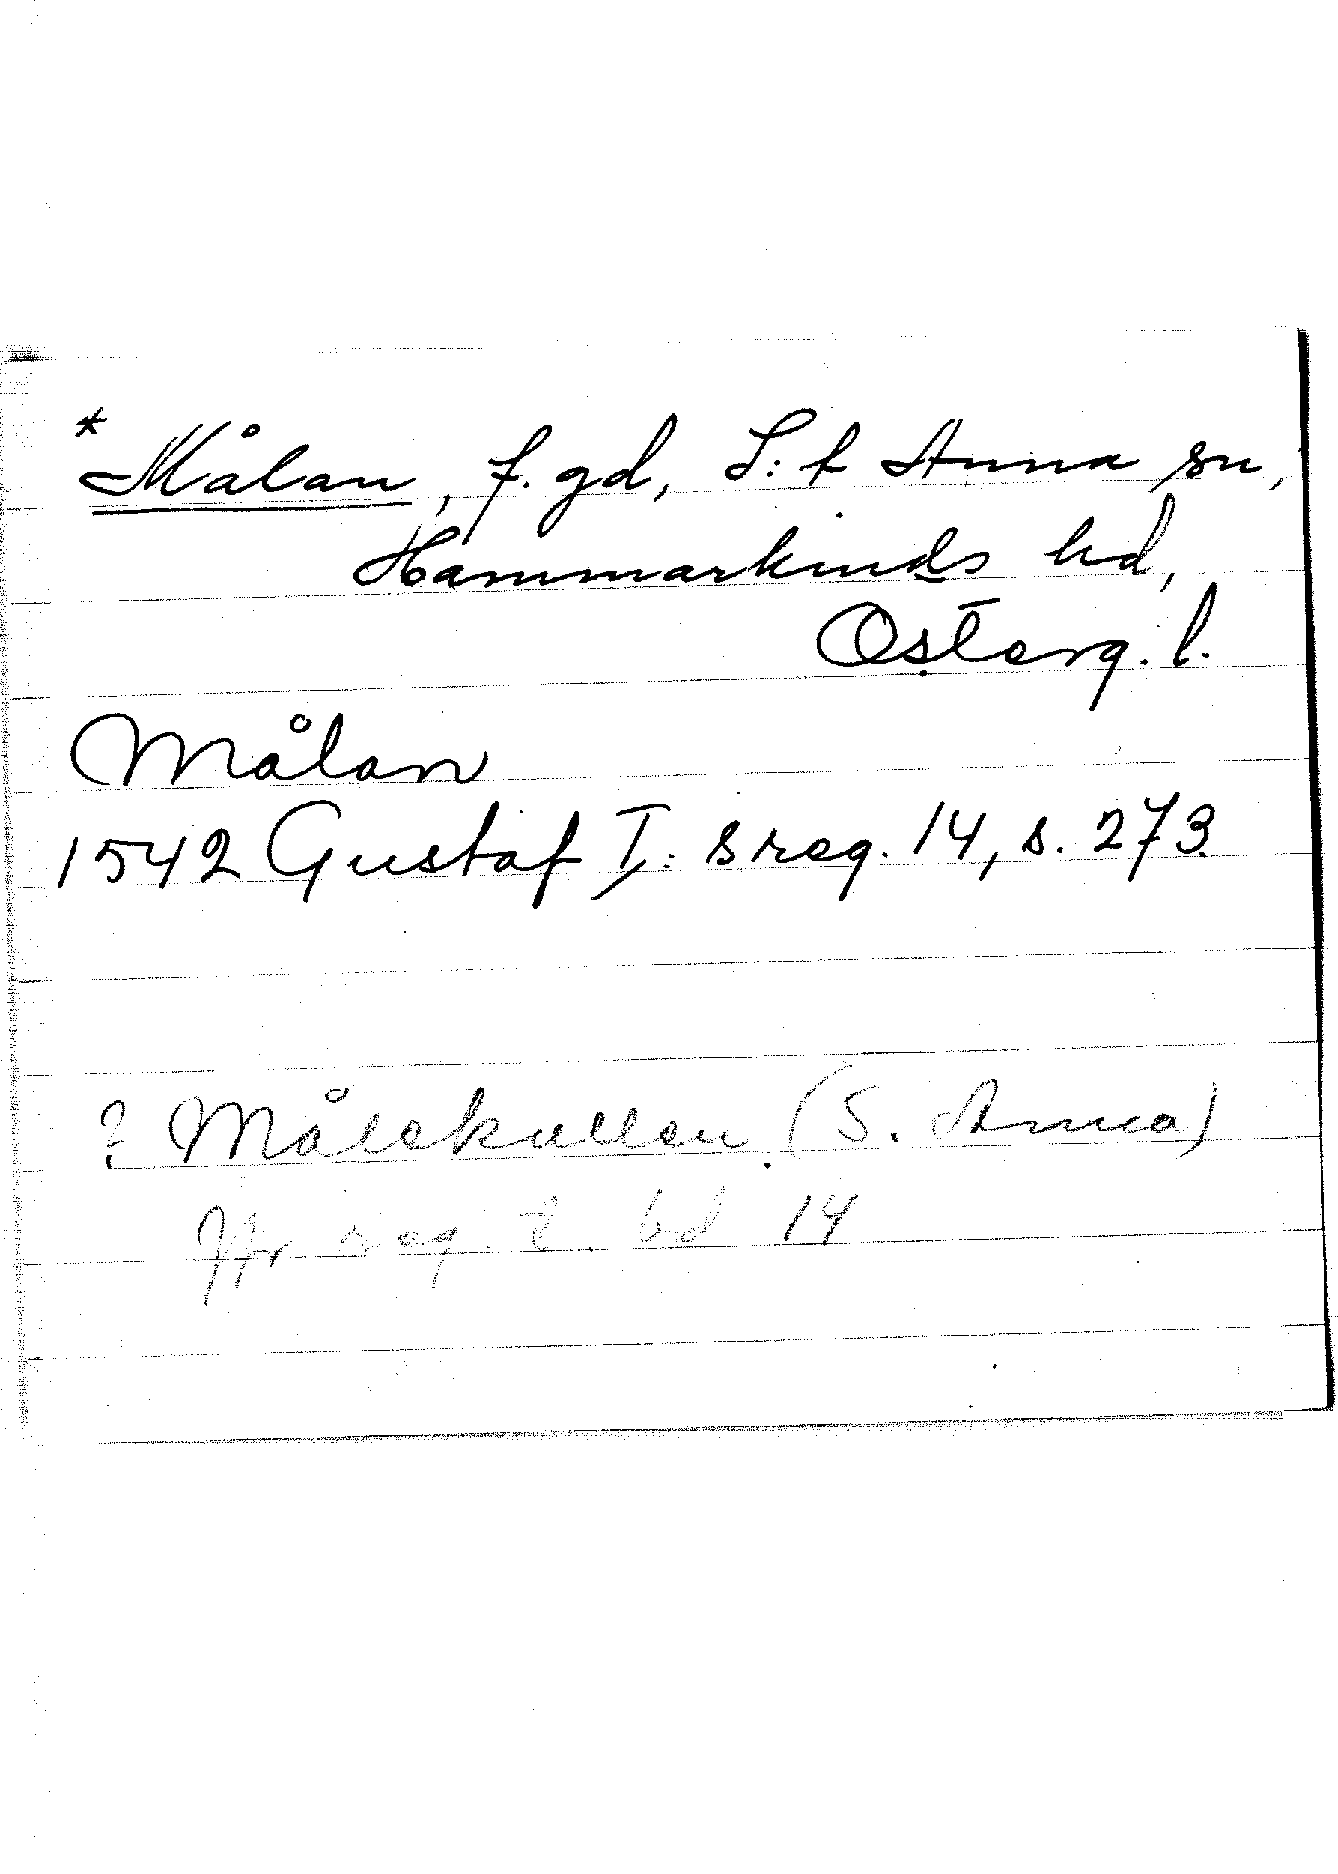 * Målan, f. gd, S:t Anna sn,
Hammarkinds hd,
Österg. l.
Målan
1542 Gustaf I:s reg. 14, s. 273
? Målskullen (S. Anna)
reg. t. bd 14